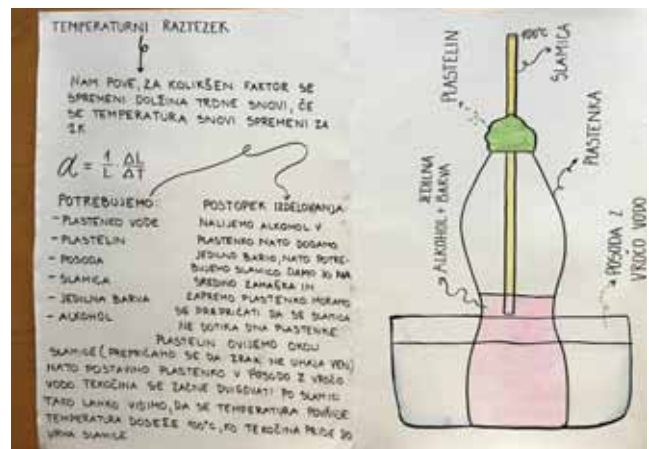 TEMPERATURNI RAZTEZEK
NAM POVE, ZA KOLIKŠEN FAKTOR SE
SPREMENI DOLŽINA TRDNE SNOVI, ČE
SE TEMPERATURA SNOVI SPREMENI ZA
1K
α = 1/L · ΔL/ΔT
POTREBUJEMO:
- PLASTENKO VODE
- PLASTELIN
- POSODA
- SLAMICA
- JEDILNA BARVA
- ALKOHOL
POSTOPEK IZDELOVANJA:
NALIJEMO ALKOHOL V
PLASTENKO NATO DODAMO
JEDILNO BARVO, NATO POTRE-
BUJEMO SLAMICO. DAMO JO NA
SREDINO ZAMAŠKA IN
ZAPREMO PLASTENKO. MORAMO
SE PREPRIČATI DA SE SLAMICA
NE DOTIKA DNA PLASTENKE.
PLASTELIN OVIJEMO OKOLI
SLAMICE (PREPRIČAMO SE DA ZRAK NE UHAJA VEN)
NATO POSTAVIMO PLASTENKO V POSODO Z VROČO
VODO TEKOČINA SE ZAČNE DVIGOVATI PO SLAMICI
TAKO LAHKO VIDIMO, DA SE TEMPERATURA POVIŠUJE
TEMPERATURA DOSEŽE 100°C, KO TEKOČINA PRIDE DO
VRHA SLAMICE
100°C
SLAMICA
PLASTELIN
PLASTENKA
JEDILNA
ALKOHOL + BARVA
POSODA Z
VROČO VODO